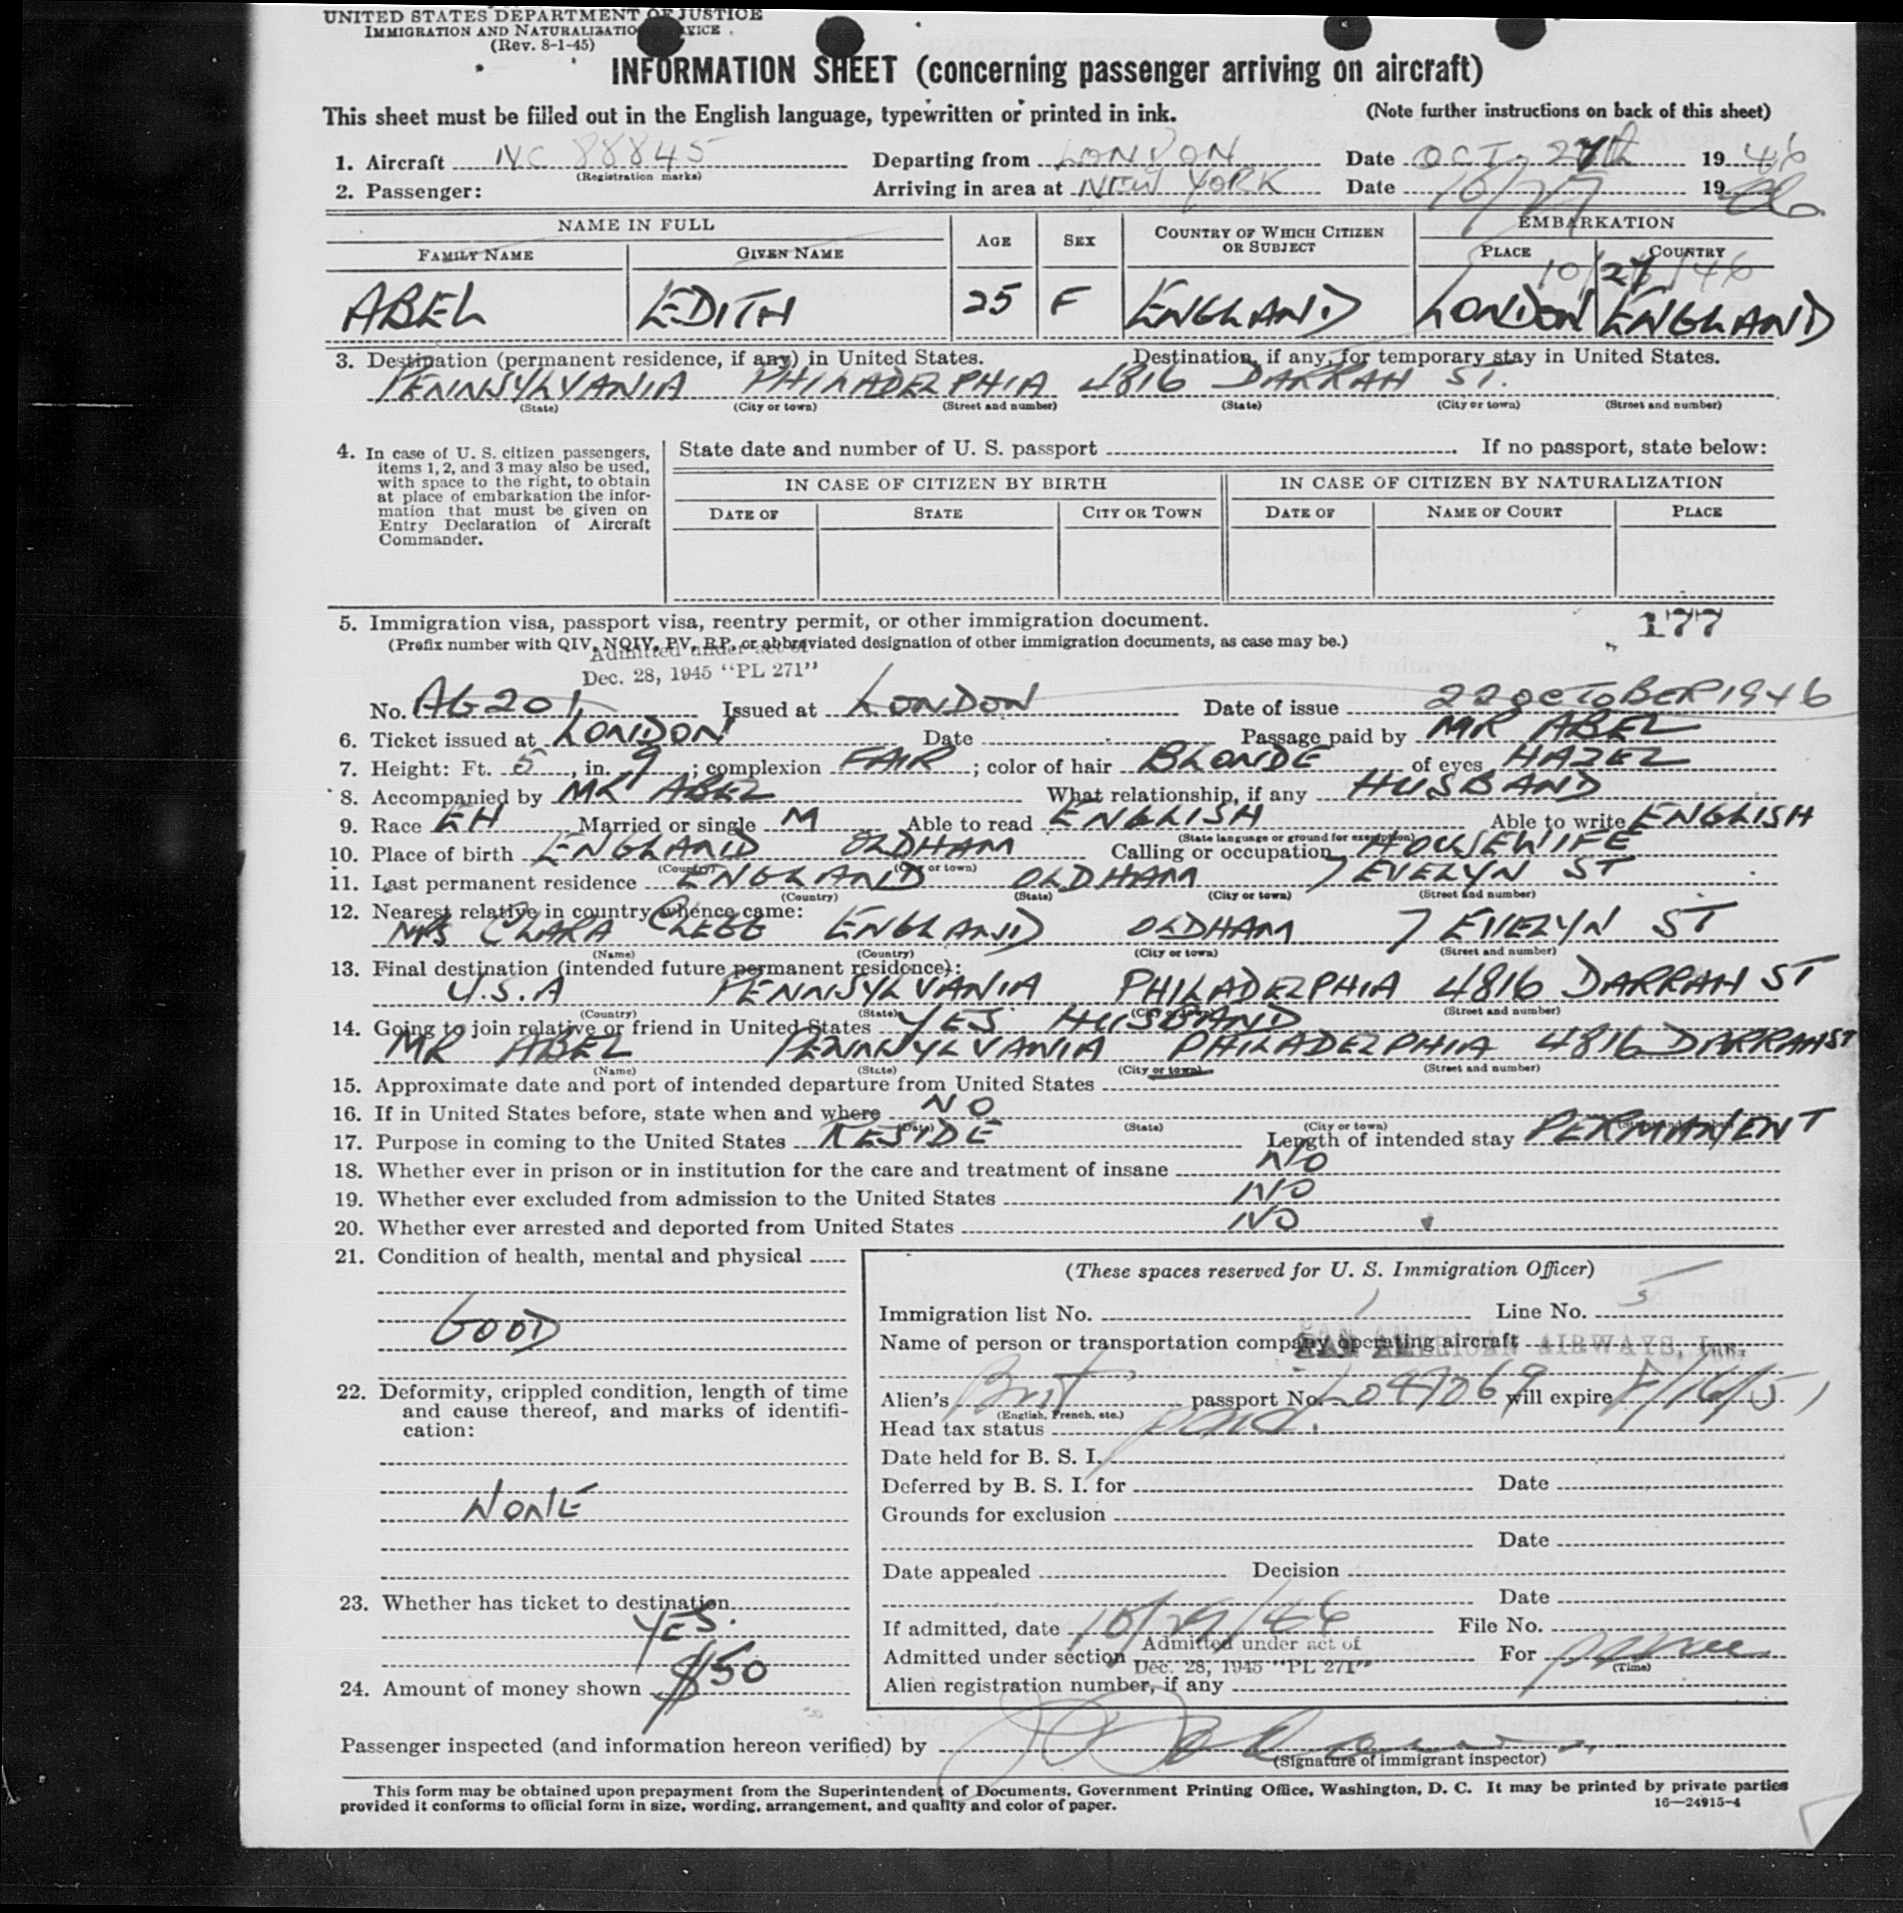 UNITED STATES DEPARTMENT OF JUSTICE
IMMIGRATION AND NATURALIZATION SERVICE
(Rev. 8-1-45)
INFORMATION SHEET (concerning passenger arriving on aircraft)
This sheet must be filled out in the English language, typewritten or printed in ink. (Note further instructions on back of this sheet)
1. Aircraft NC 88845 Departing from LONDON Date OCT. 27th 1946
(Registration marks)
2. Passenger: Arriving in area at NEW YORK Date 10/29 1946
NAME IN FULL AGE SEX COUNTRY OF WHICH CITIZEN OR SUBJECT EMBARKATION
FAMILY NAME GIVEN NAME PLACE COUNTRY
10/27/46
ABEL EDITH 25 F ENGLAND LONDON ENGLAND
3. Destination (permanent residence, if any) in United States. Destination, if any, for temporary stay in United States.
PENNSYLVANIA PHILADELPHIA 4816 DARRAH ST.
(State) (City or town) (Street and number) (State) (City or town) (Street and number)
4. In case of U. S. citizen passengers, items 1, 2, and 3 may also be used, with space to the right, to obtain at place of embarkation the information that must be given on Entry Declaration of Aircraft Commander.
State date and number of U. S. passport If no passport, state below:
IN CASE OF CITIZEN BY BIRTH IN CASE OF CITIZEN BY NATURALIZATION
DATE OF STATE CITY OR TOWN DATE OF NAME OF COURT PLACE
5. Immigration visa, passport visa, reentry permit, or other immigration document. 177
(Prefix number with QIV, NQIV, PV, RP, or abbreviated designation of other immigration documents, as case may be.)
Admitted under act of
Dec. 28, 1945 "PL 271"
No. AG201 Issued at LONDON Date of issue 22 OCTOBER 1946
6. Ticket issued at LONDON Date Passage paid by MR ABEL
7. Height: Ft. 5, in. 9; complexion FAIR; color of hair BLONDE of eyes HAZEL
8. Accompanied by MR ABEL What relationship, if any HUSBAND
9. Race EH Married or single M Able to read ENGLISH Able to write ENGLISH
(State language or ground for exemption)
10. Place of birth ENGLAND OLDHAM Calling or occupation HOUSEWIFE
(Country) (City or town)
11. Last permanent residence ENGLAND OLDHAM 7 EVELYN ST
(Country) (State) (City or town) (Street and number)
12. Nearest relative in country whence came:
MRS CLARA CLEGG ENGLAND OLDHAM 7 EVELYN ST
(Name) (Country) (City or town) (Street and number)
13. Final destination (intended future permanent residence):
U.S.A PENNSYLVANIA PHILADELPHIA 4816 DARRAH ST
(Country) (State) (City or town) (Street and number)
14. Going to join relative or friend in United States YES HUSBAND
MR ABEL PENNSYLVANIA PHILADELPHIA 4816 DARRAH ST
(Name) (State) (City or town) (Street and number)
15. Approximate date and port of intended departure from United States
16. If in United States before, state when and where NO
(Date) (State) (City or town) (Street and number)
17. Purpose in coming to the United States RESIDE Length of intended stay PERMANENT
18. Whether ever in prison or in institution for the care and treatment of insane NO
19. Whether ever excluded from admission to the United States NO
20. Whether ever arrested and deported from United States NO
21. Condition of health, mental and physical
GOOD
22. Deformity, crippled condition, length of time and cause thereof, and marks of identification:
NONE
23. Whether has ticket to destination
YES.
24. Amount of money shown $50
(These spaces reserved for U. S. Immigration Officer)
Immigration list No. 1 Line No. 5
Name of person or transportation company operating aircraft PAN AMERICAN AIRWAYS, INC.
Alien's Brit passport No. L049069 will expire 8/16/51
(English, French, etc.)
Head tax status pmd.
Date held for B. S. I.
Deferred by B. S. I. for Date
Grounds for exclusion
Date
Date appealed Decision
Date
If admitted, date 10/29/46 File No.
Admitted under section Admitted under act of Dec. 28, 1945 "PL 271" For
(Time)
Alien registration number, if any
Passenger inspected (and information hereon verified) by
(Signature of immigrant inspector)
This form may be obtained upon prepayment from the Superintendent of Documents, Government Printing Office, Washington, D. C. It may be printed by private parties
provided it conforms to official form in size, wording, arrangement, and quality and color of paper. 16—24915-4